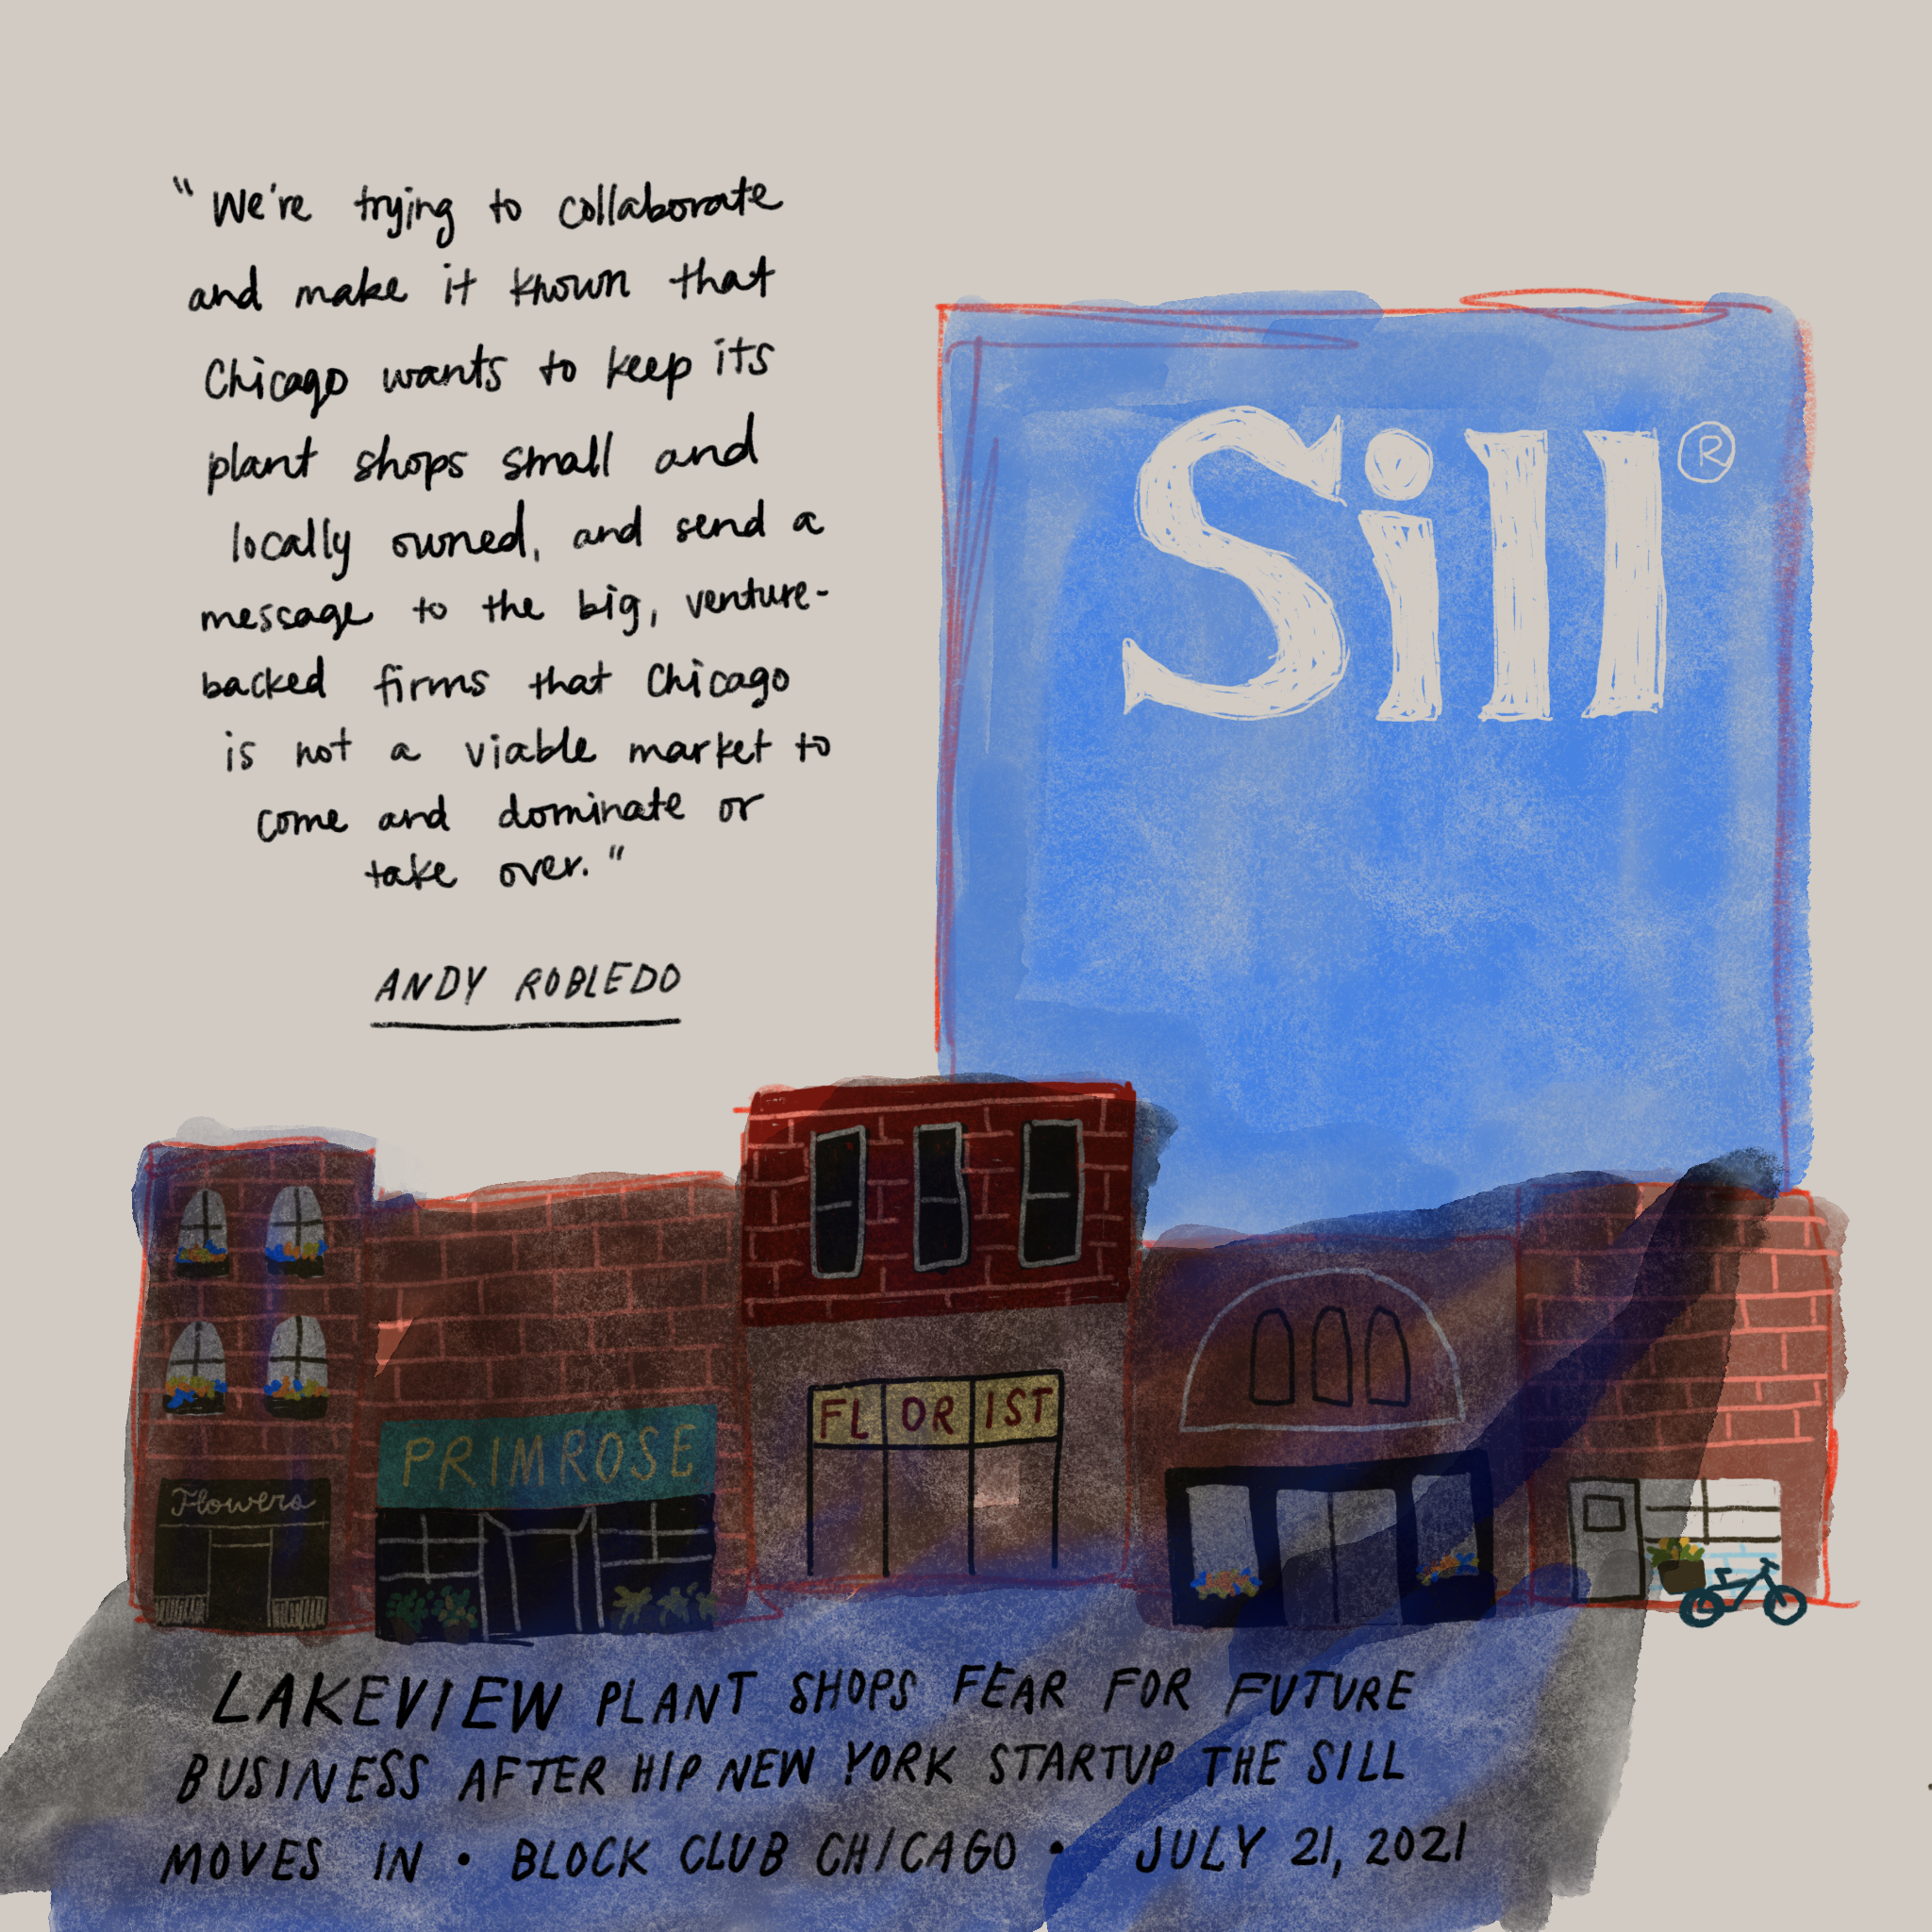 "We're trying to collaborate
and make it known that
Chicago wants to keep its
plant shops small and
locally owned, and send a
message to the big, venture-
backed firms that Chicago
is not a viable market to
come and dominate or
take over."
ANDY ROBLEDO
Sill®
Flowers
PRIMROSE
FLORIST
LAKEVIEW PLANT SHOPS FEAR FOR FUTURE
BUSINESS AFTER HIP NEW YORK STARTUP THE SILL
MOVES IN • BLOCK CLUB CHICAGO • JULY 21, 2021